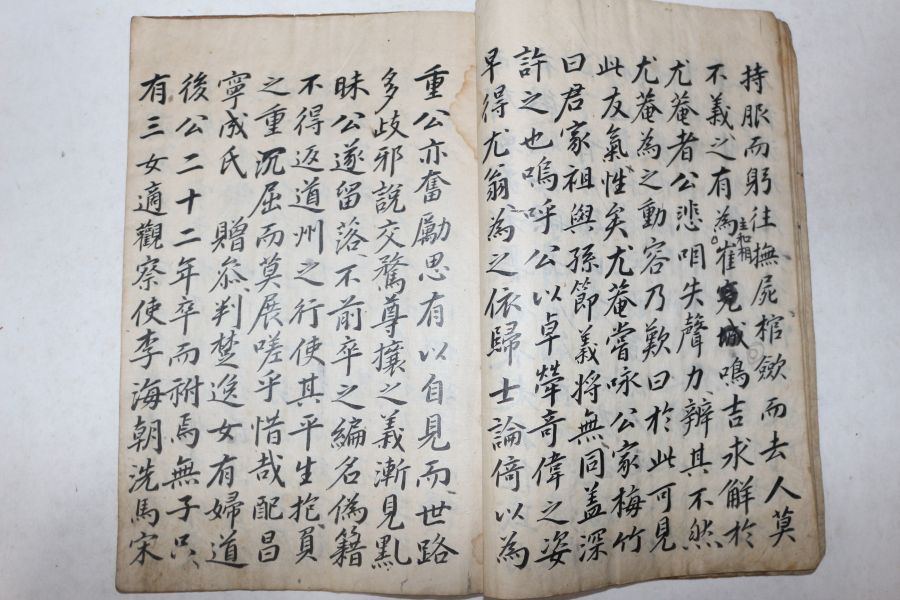 持服而躬往撫屍棺歛而去人莫
不義之有為主和相崔完城鳴吉求解於
尤菴者公悲咀失聲力辨其不然
尤菴為之動容乃歎曰於此可見
此友氣性矣尤菴嘗咏公家梅竹
曰君家祖與孫節義将無同盖深
許之也嗚呼公以卓犖奇偉之姿
早得尤翁為之依歸士論倚以為
重公亦奮勵思有以自見而世路
多歧邪說交騖尊攘之義漸見
昧公遂留落不前卒之編名偽籍
不得返道州之行使其平生抱負
之重沉屈而莫展嗟乎惜哉配昌
寧成氏 贈叅判楚逸女有婦道
後公二十二年卒而祔焉無子只
有三女適觀察使李海朝洗馬宋